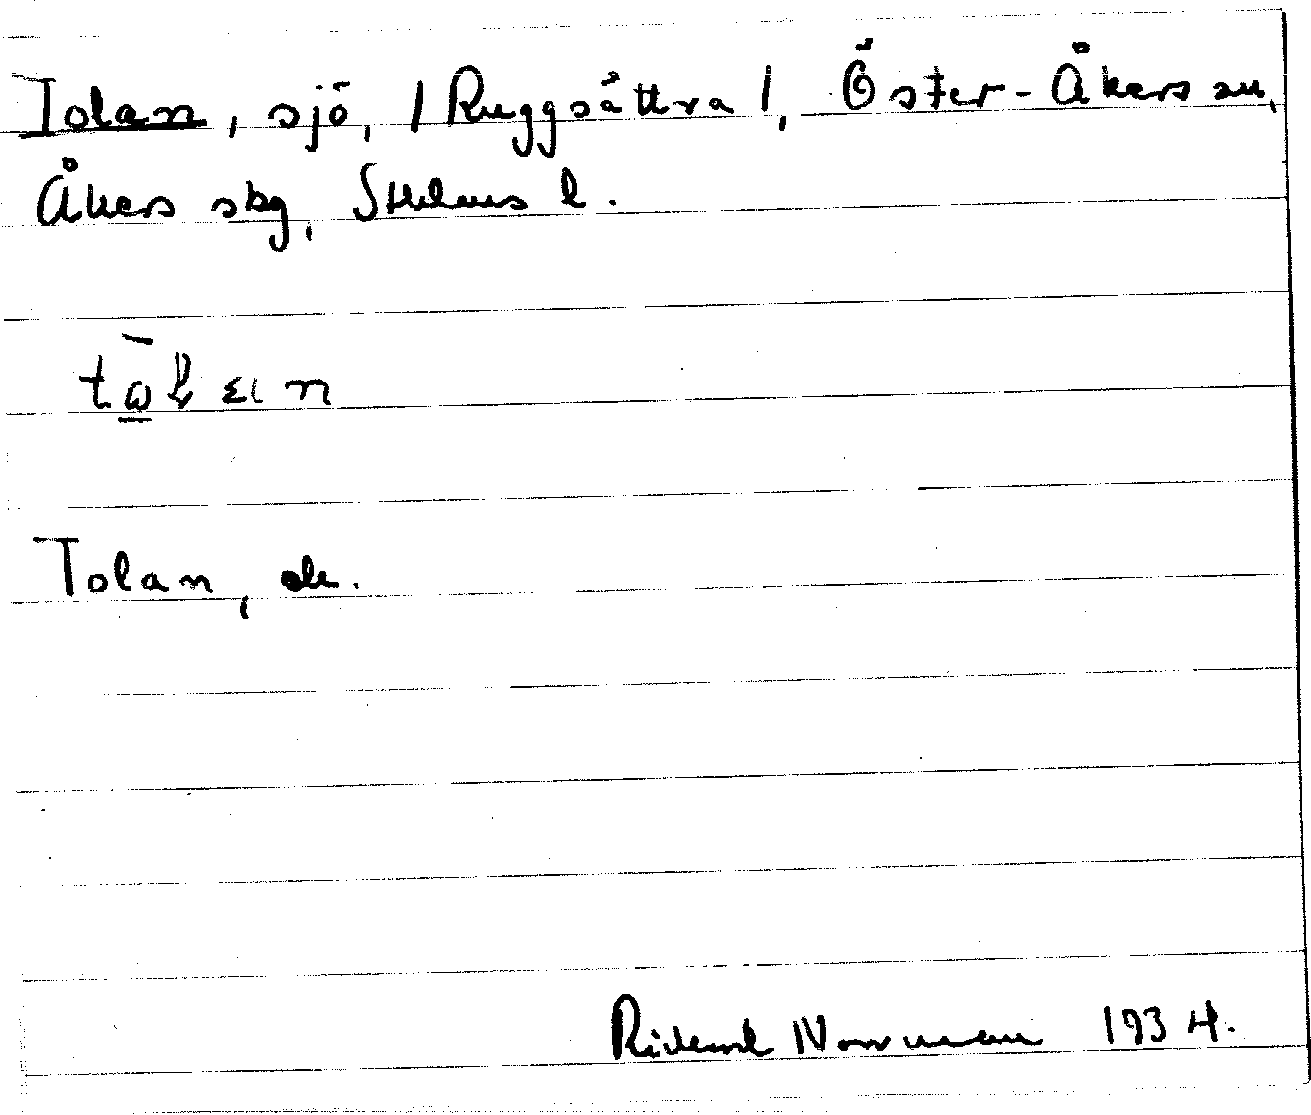 Tolan, sjö, / Ruggsättra /, Öster-Åkers sn,
Åkers skg, Sthlms l.
Tolan, ds.
Rickard Norrman 1934.